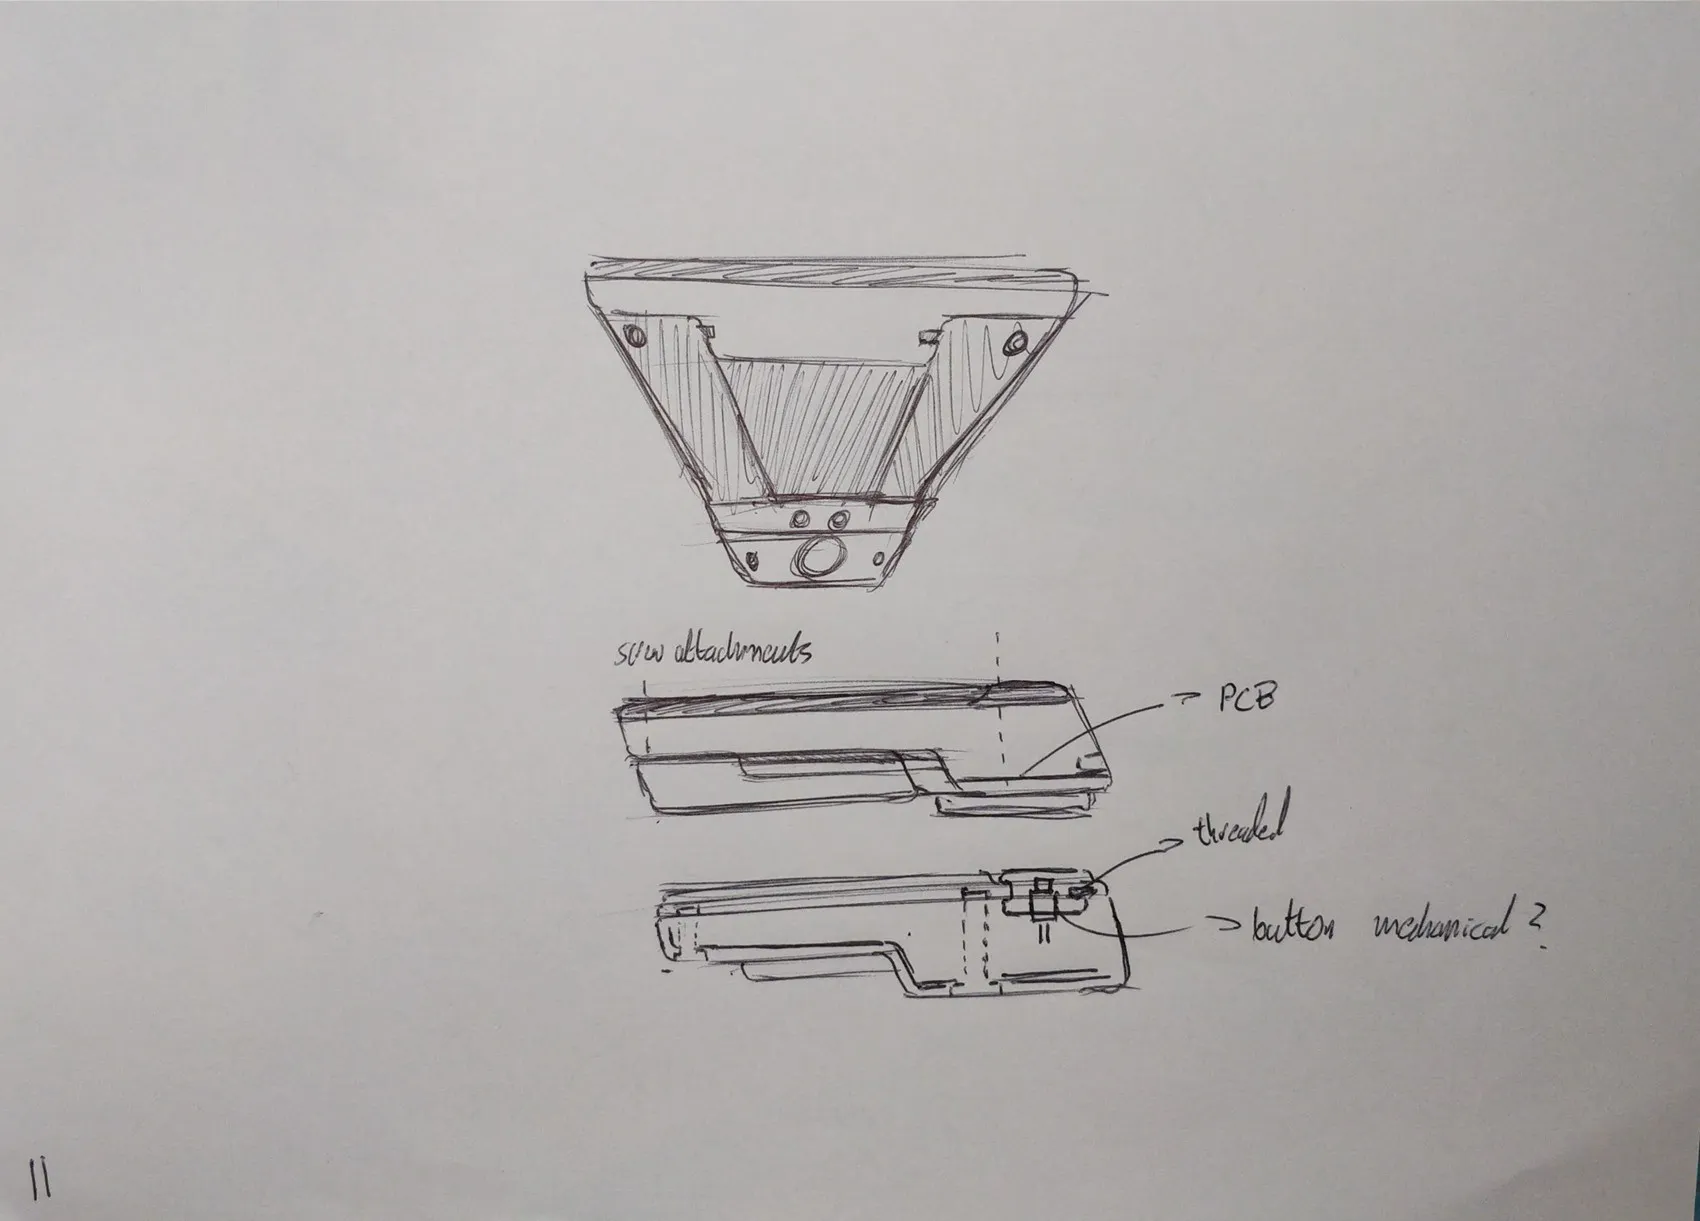 screw attachments
PCB
threaded
button mechanical ?
11